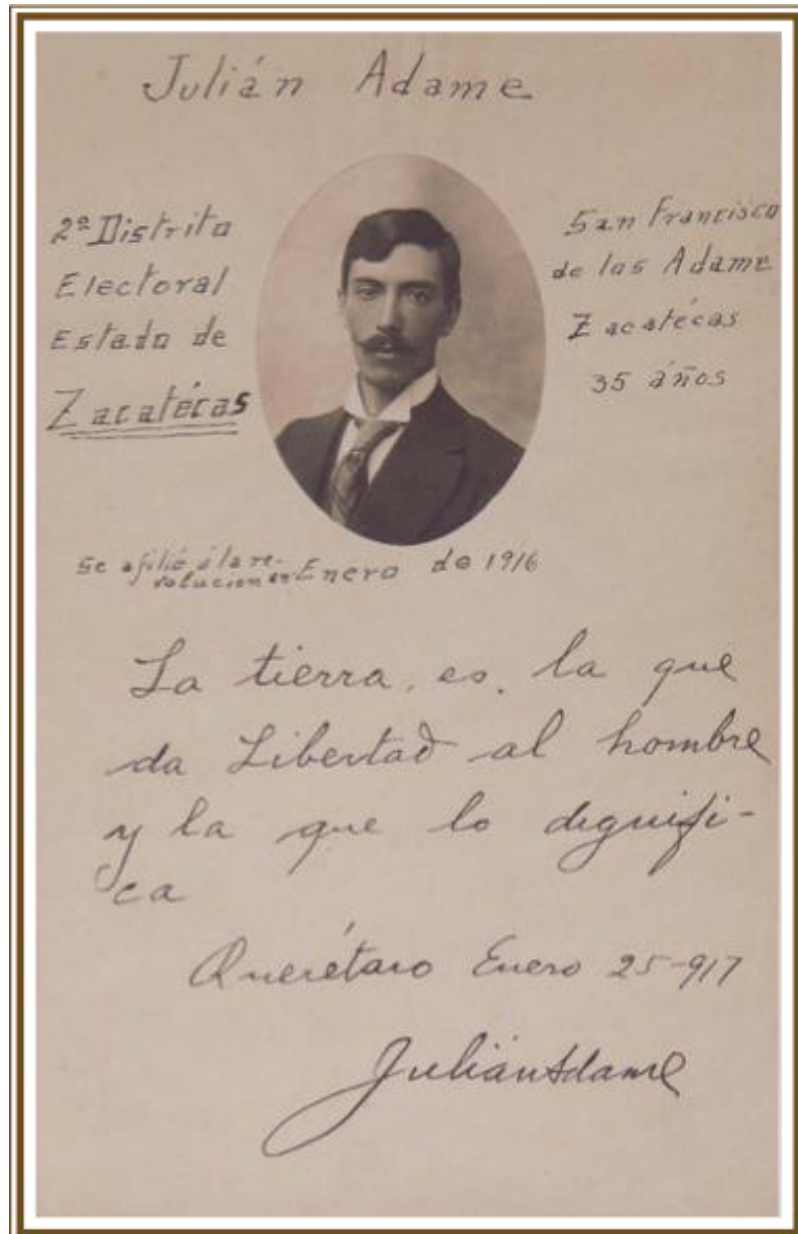 Julián Adame
2º Distrito
Electoral
Estado de
Zacatécas
San Francisco
de los Adame
Zacatécas
35 años
Se afilió á la re-
volucion en Enero de 1916
La tierra, es, la que
da Libertad al hombre
y la que lo dignifi-
ca
Querétaro Enero 25-917
Julián Adame